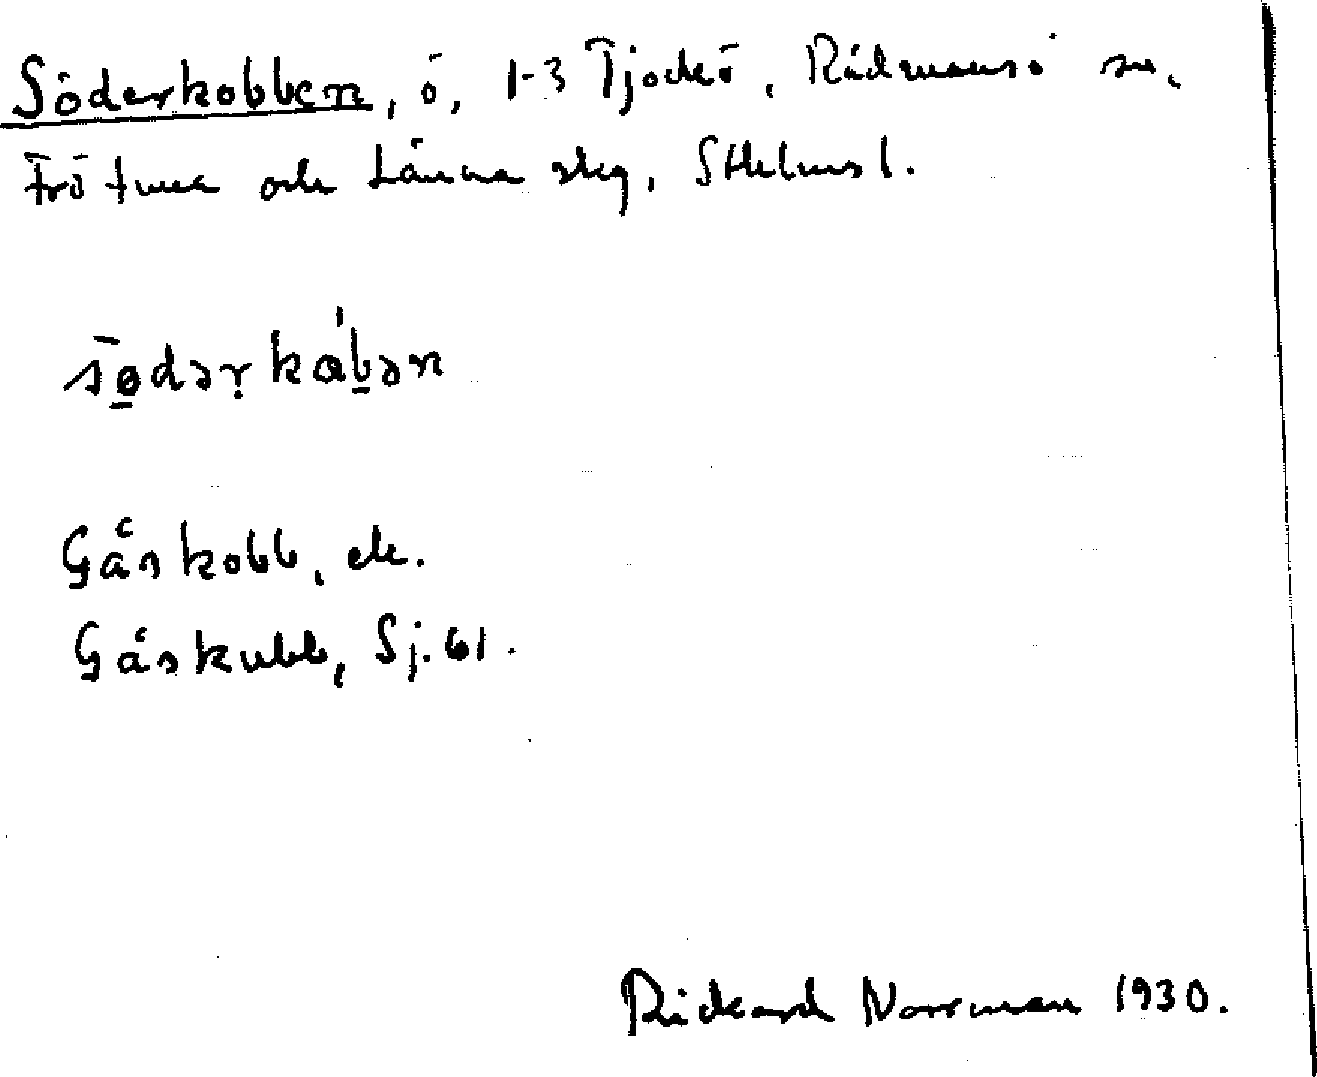 Söderkobben, ö, 1-3 Tjockö, Rådmansö sn.
Frötuna och Länna skg, Sthlms l.
södərkåbən
Gåskobb, ek.
Gåskubb, Sj. 61.
Rickard Norrman 1930.